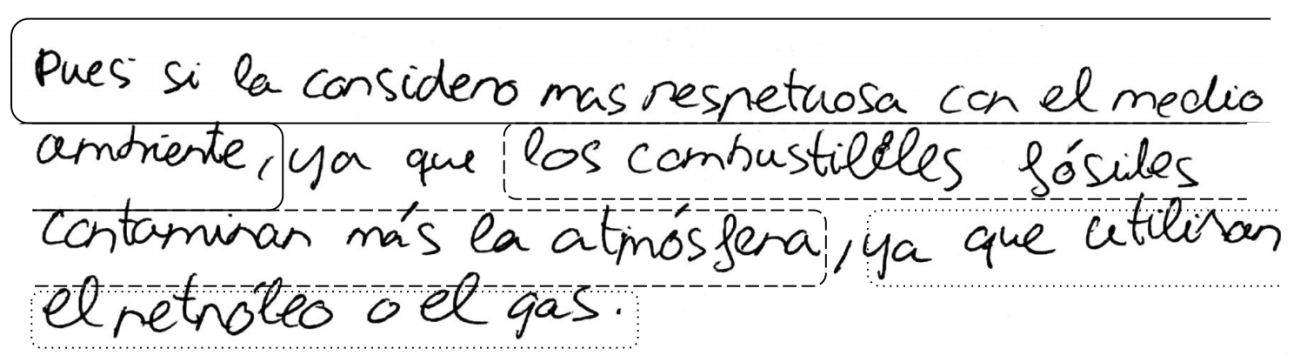 Pues si la considero mas respetuosa con el medio
ambiente, ya que los combustibles fósiles
contaminan más la atmósfera, ya que utilisan
el petróleo o el gas.